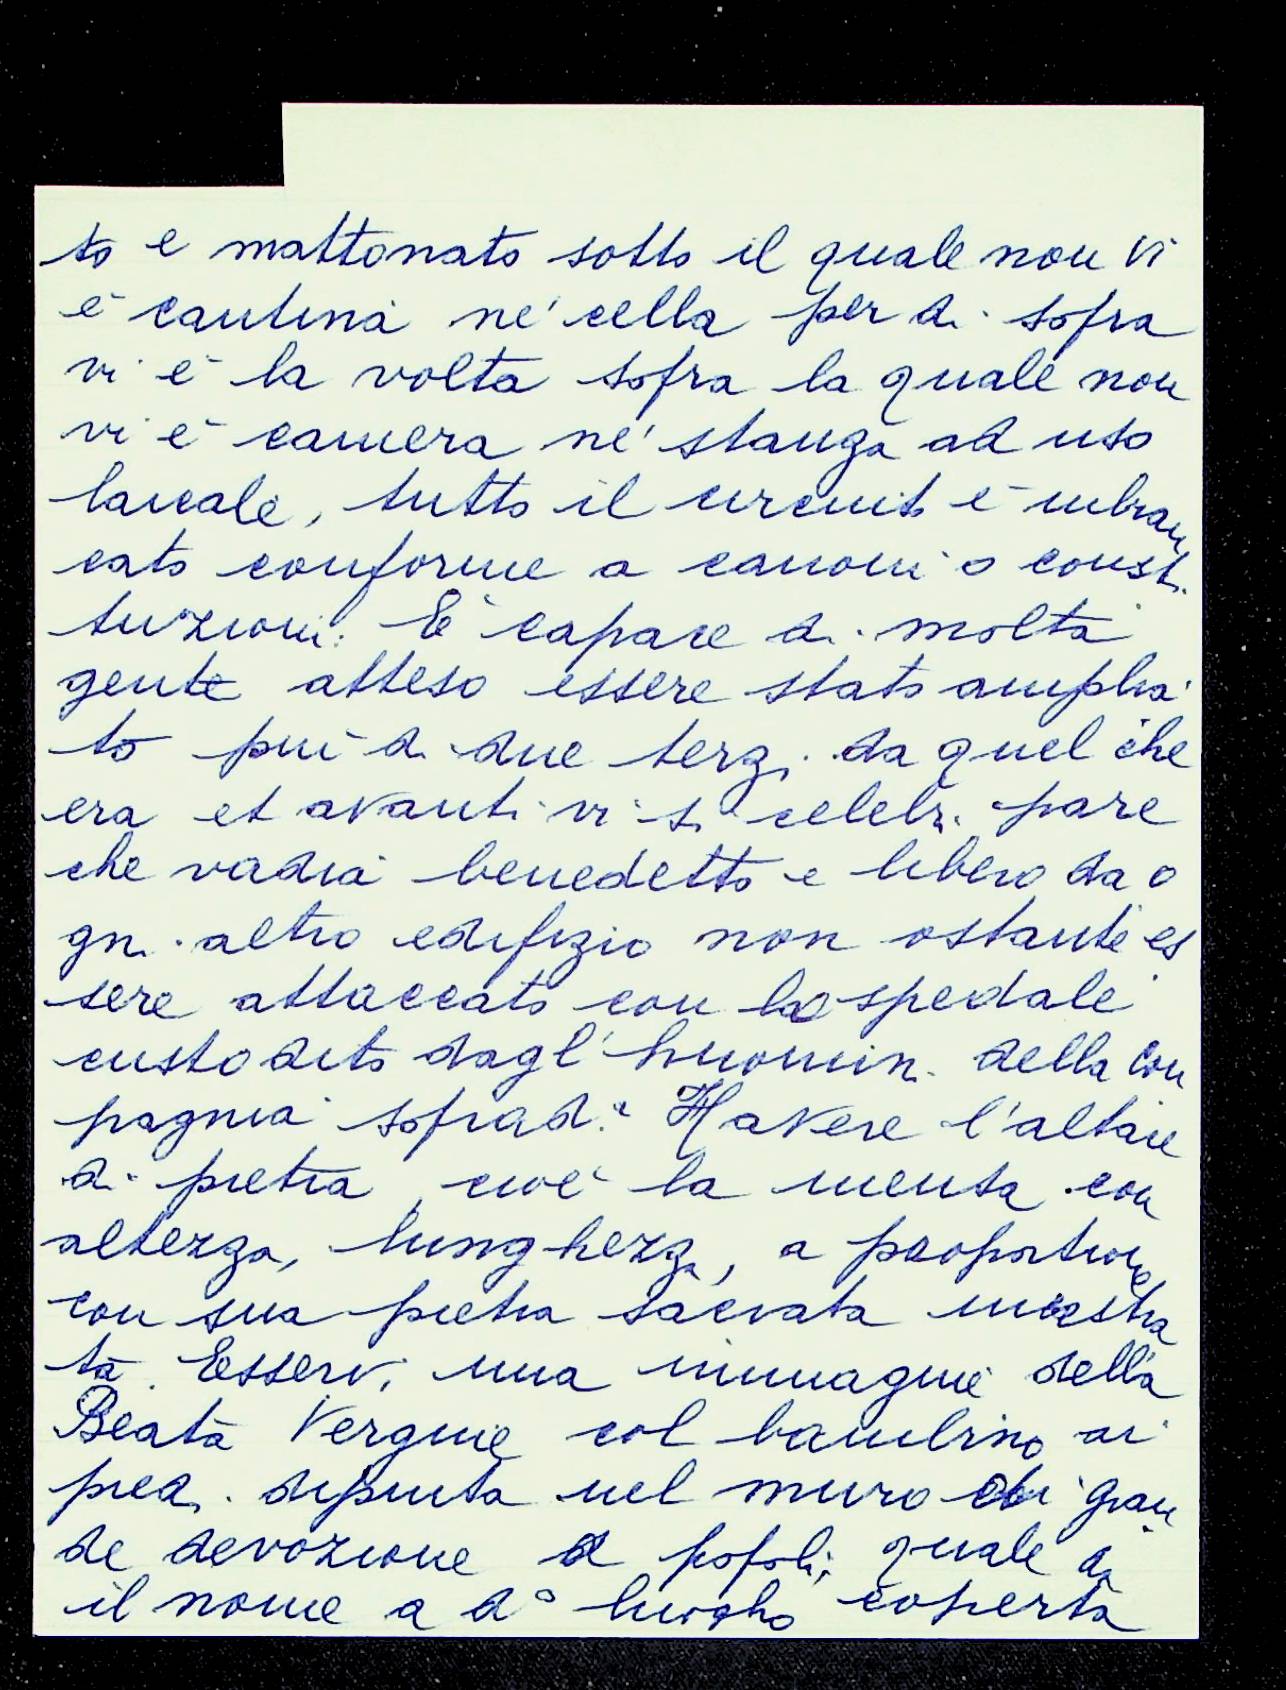 to e mattonato sotto il quale non vi
è cantina nè cella per di sopra
vi è la volta sopra la quale non
vi è camera nè stanza ad uso
laicale, tutto il circuito è imbian
cato conforme a canoni o consti
tuzioni. È capace di molta
gente atteso essere stato amplia
to più di due terzi da quel che
era et avanti vi si celebri pare
che vadia benedetto e libero da o
gni altro edifizio non ostante es
sere attaccato con lo spedale
custodito dagl'huomini della com
pagnia soprad.ª Havere l'altare
di pietra, cioè la mensa con
altezza, lunghezza, a proportione
con sua pietra sacrata incastra
ta. Esservi una immagine della
Beata Vergine col bambino ai
piedi dipinta nel muro di gran
de devozione ai popoli, quale dà
il nome a d° luogho coperta